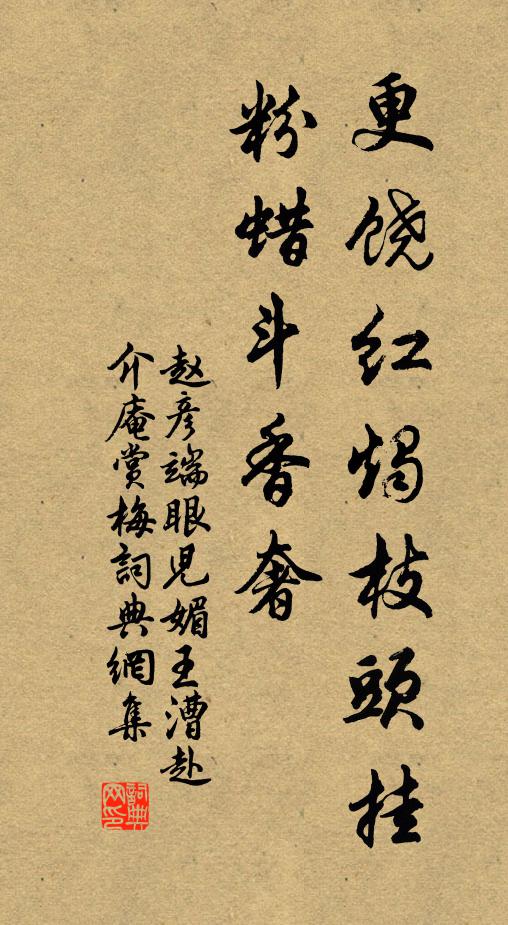 更饶红烛枝頭挂
粉蜡斗香奢
赵彦端眼児媚王漕赴
介庵赏梅詞典網集
詞典网印